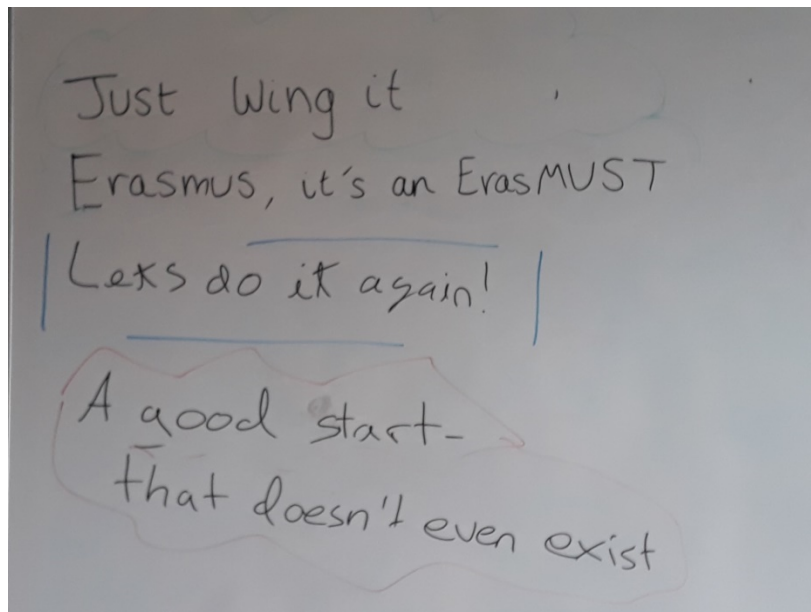 Just Wing it
Erasmus, it's an ErasMUST
Lets do it again!
A good start-
that doesn't even exist